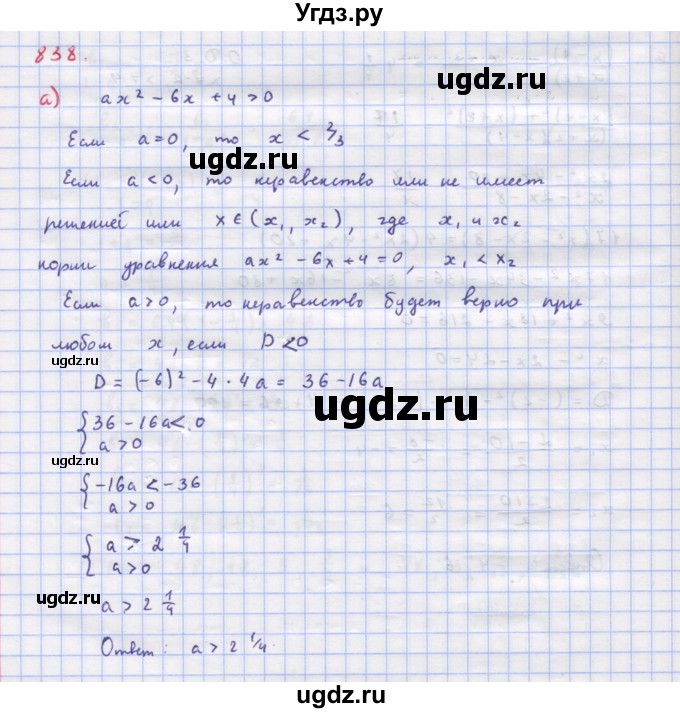 Угдз.ру
838.
а) ax² - 6x + 4 > 0
ugdz.ru
Если a = 0, то x < 2/3
ugdz.ru
Если a < 0, то неравенство или не имеет
решений или x ∈ (x₁, x₂), где x₁ и x₂
корни уравнения ax² - 6x + 4 = 0, x₁ < x₂
Если a > 0, то неравенство будет верно при
любом x, если D < 0
ugdz.ru
D = (-6)² - 4 · 4a = 36 - 16a
ugdz.ru
{ 36 - 16a < 0
a > 0
ugdz.ru
{ -16a < -36
a > 0
{ a > 2 1/4
a > 0
ugdz.ru
a > 2 1/4
Ответ: a > 2 1/4.
ugdz.ru